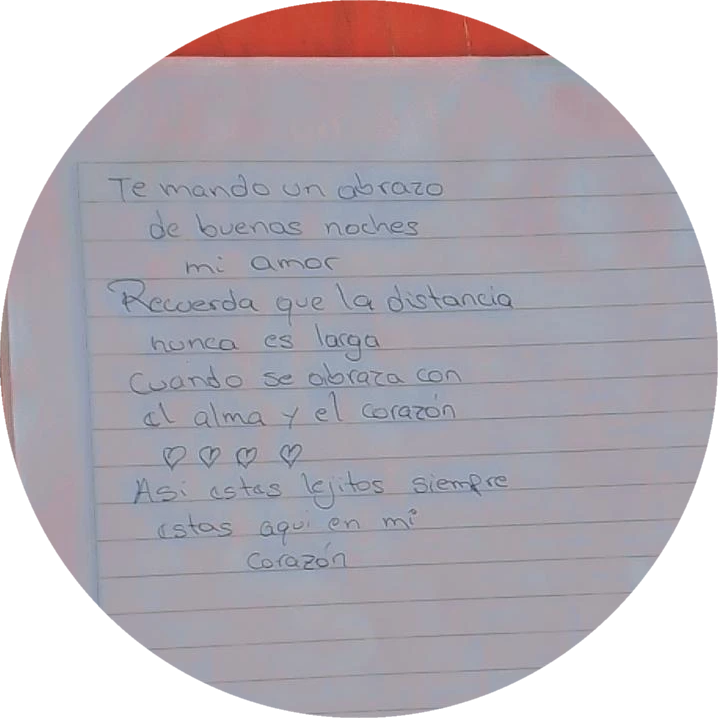 Te mando un abrazo
de buenas noches
mi amor
Recuerda que la distancia
nunca es larga
Cuando se abraza con
el alma y el corazón
♡ ♡ ♡ ♡
Asi estes lejitos siempre
estas aqui en mi
Corazón